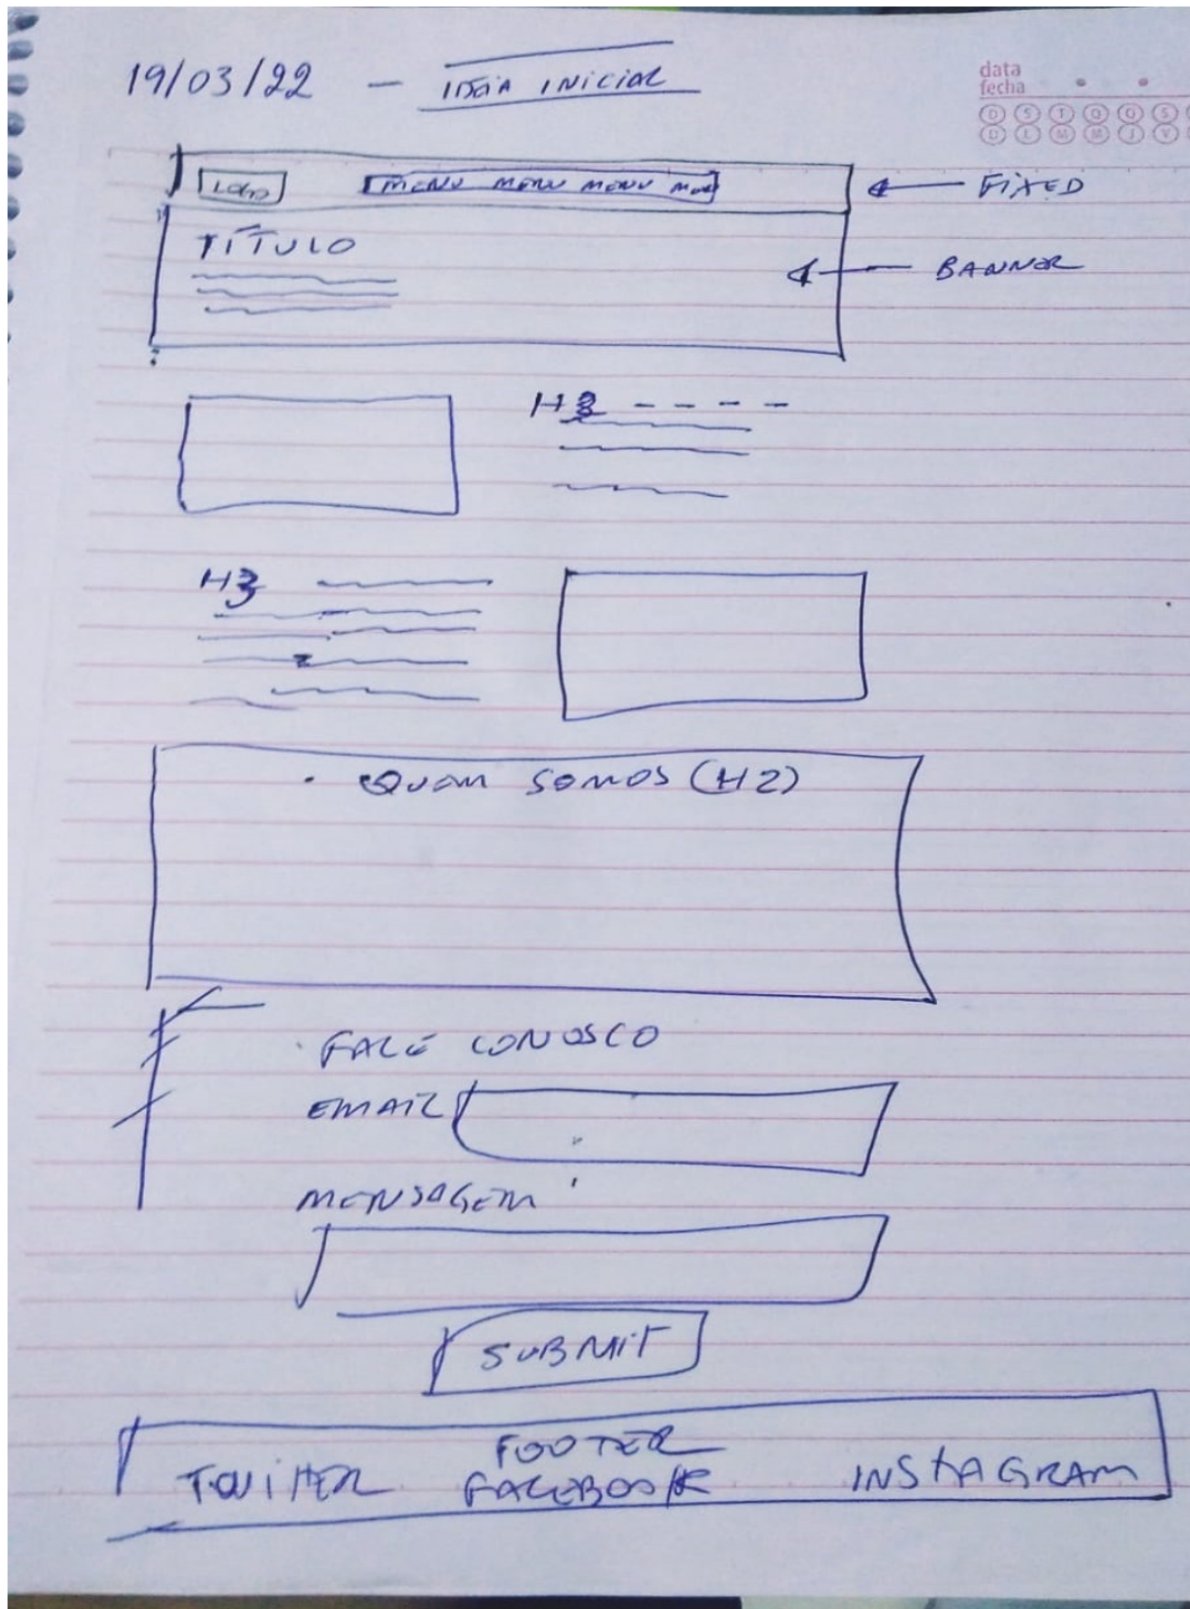 19/03/22 — IDEIA INICIAL
data
fecha
D S T Q Q S
D L M M J V
LOGO MENU MENU MENU MENU ← FIXED
TÍTULO
← BANNER
H3 - - - -
H3
• QUEM SOMOS (H2)
FALE CONOSCO
EMAIL
MENSAGEM
SUBMIT
FOOTER
TWITTER FACEBOOK INSTAGRAM